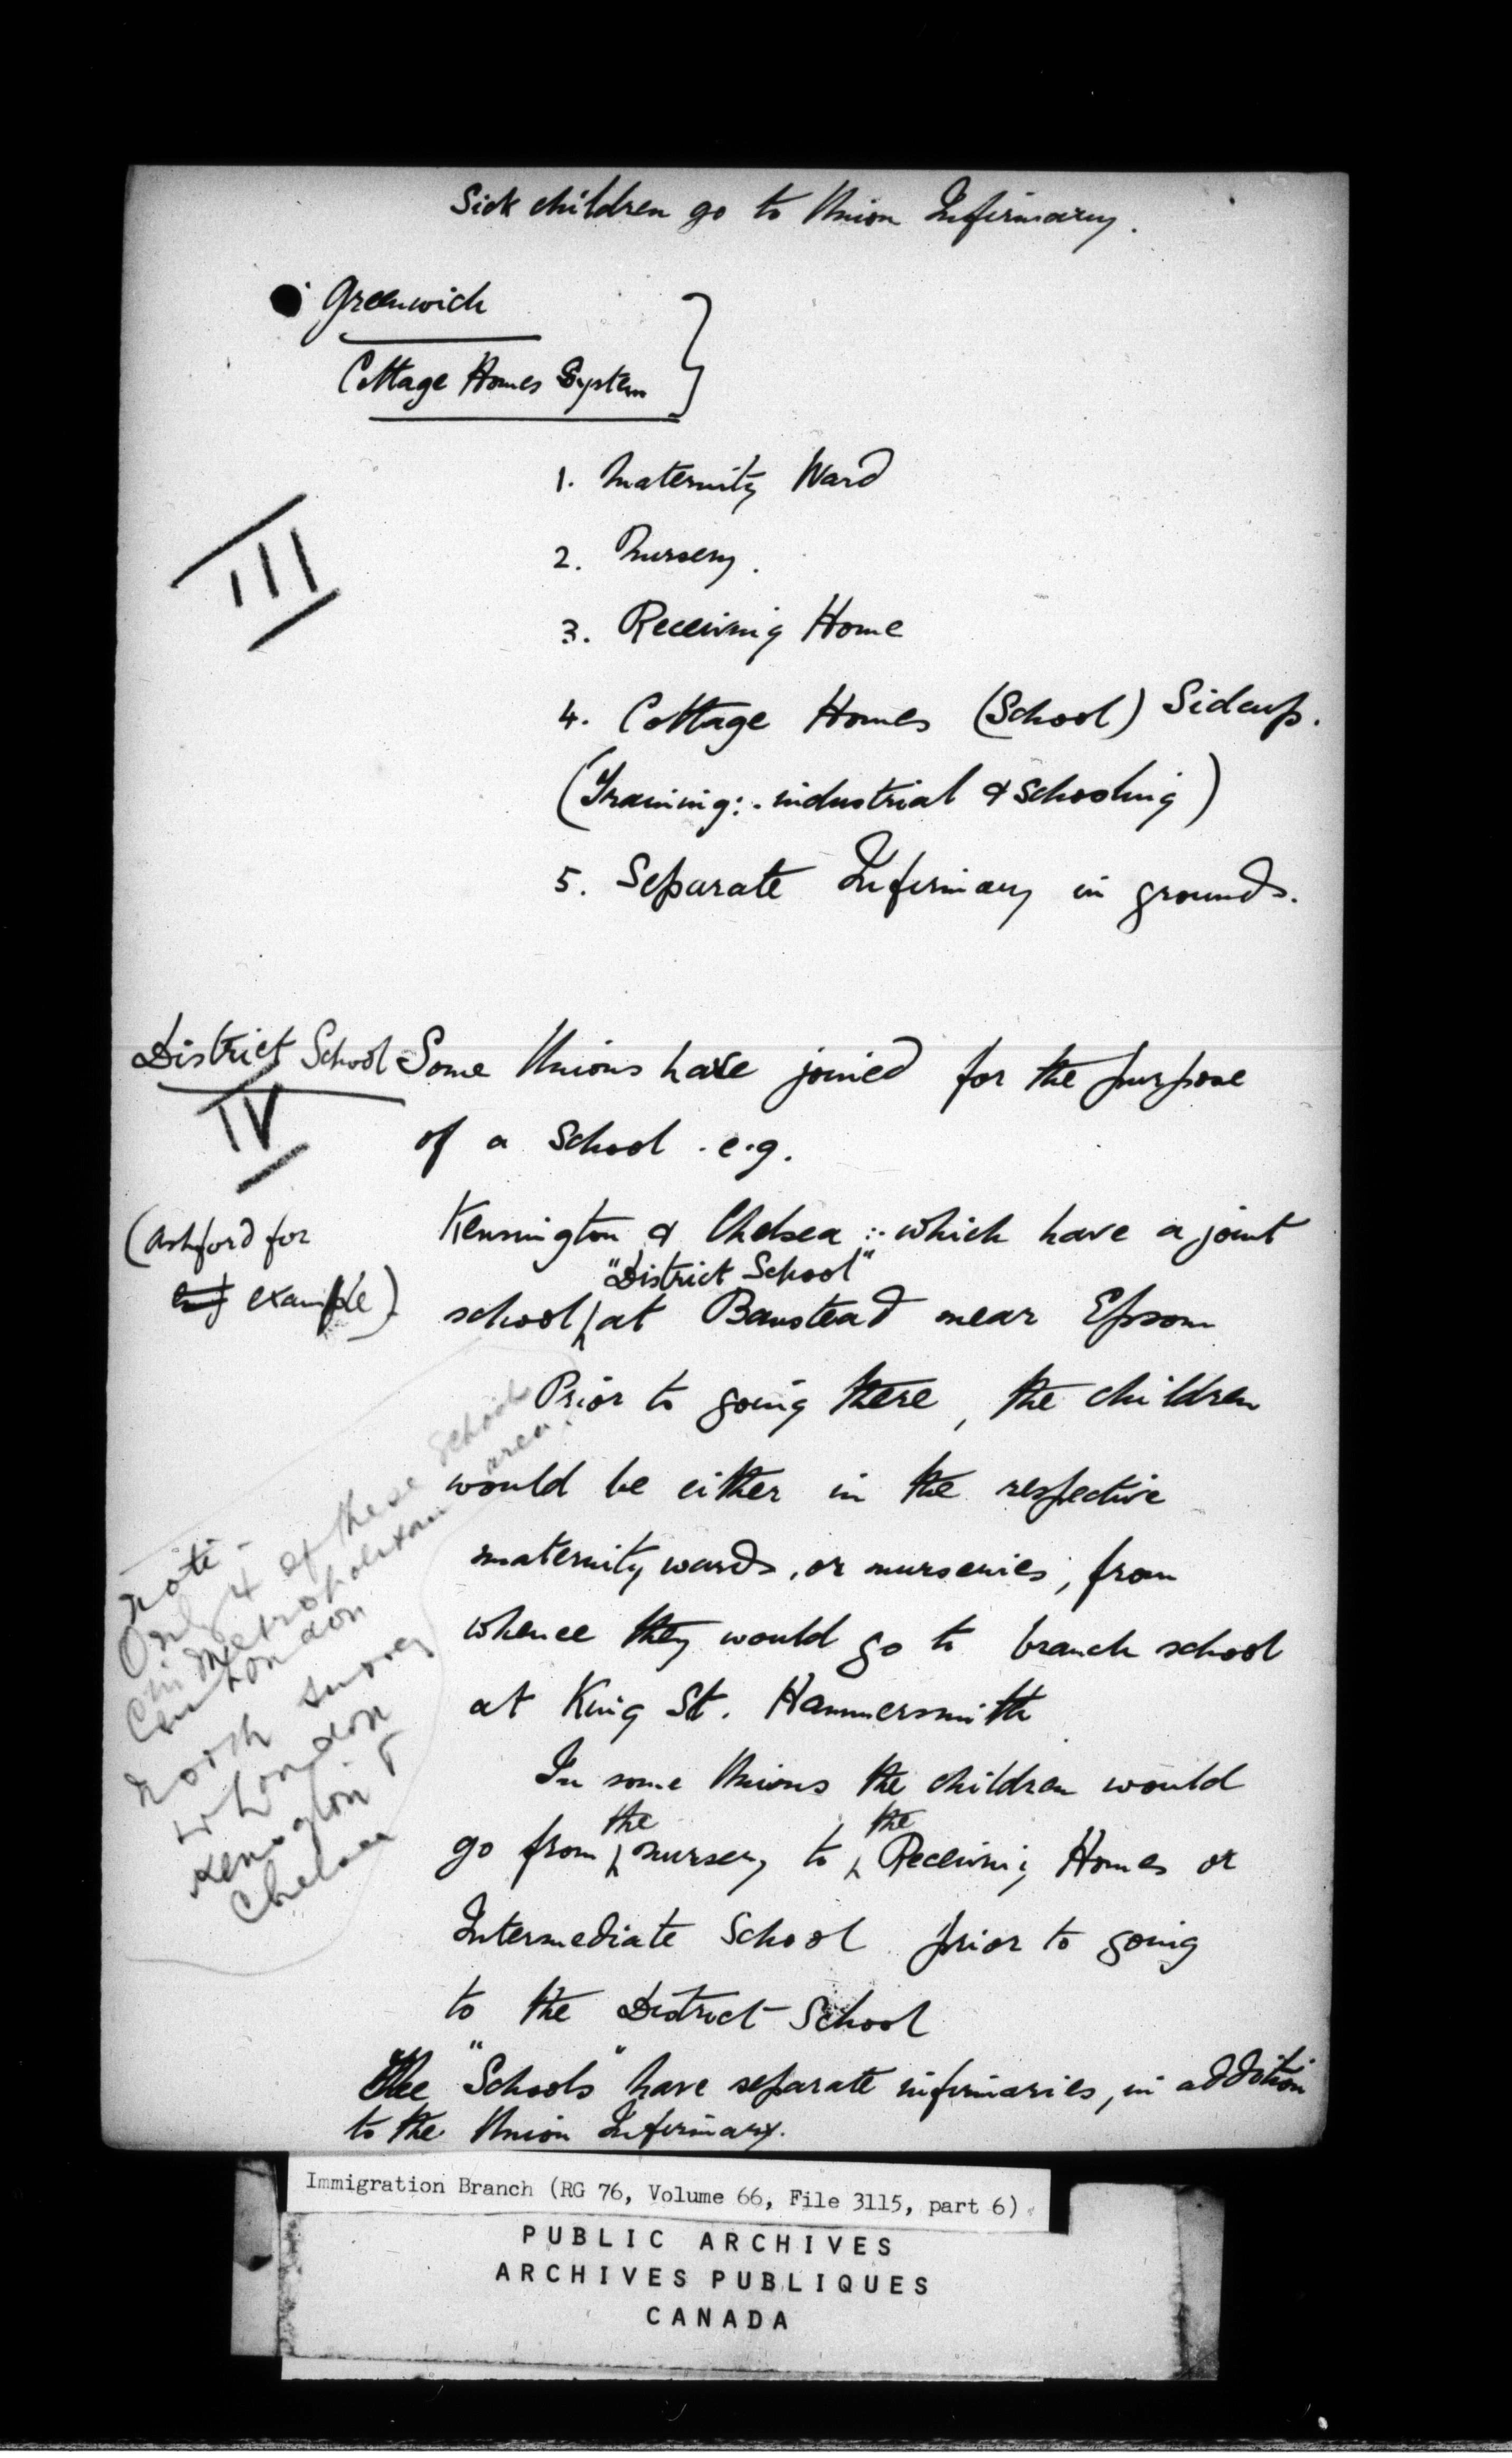 Sick children go to Union Infirmary.
Greenwich
Cottage Homes System
III
1. Maternity Ward
2. Nursery.
3. Receiving Home
4. Cottage Homes (School) Sidcup.
(Training:- industrial & schooling)
5. Separate Infirmary in grounds.
District School
IV
(Ashford for
example)
Some Unions have joined for the purpose
of a School. e.g.
Kensington & Chelsea :- which have a joint
"District School"
school at Banstead near Epsom
Prior to going there, the children
would be either in the respective
maternity wards, or nurseries, from
whence they would go to branch school
at King St. Hammersmith
In some Unions the children would
go from the nursery to the Receiving Homes or
Intermediate School prior to going
to the District School
The "Schools" have separate infirmaries, in addition
to the Union Infirmary.
Note -
Only 4 of these schools
in Metropolitan area.
London
North Surrey
W London
Kensington &
Chelsea
Immigration Branch (RG 76, Volume 66, File 3115, part 6)
PUBLIC ARCHIVES
ARCHIVES PUBLIQUES
CANADA